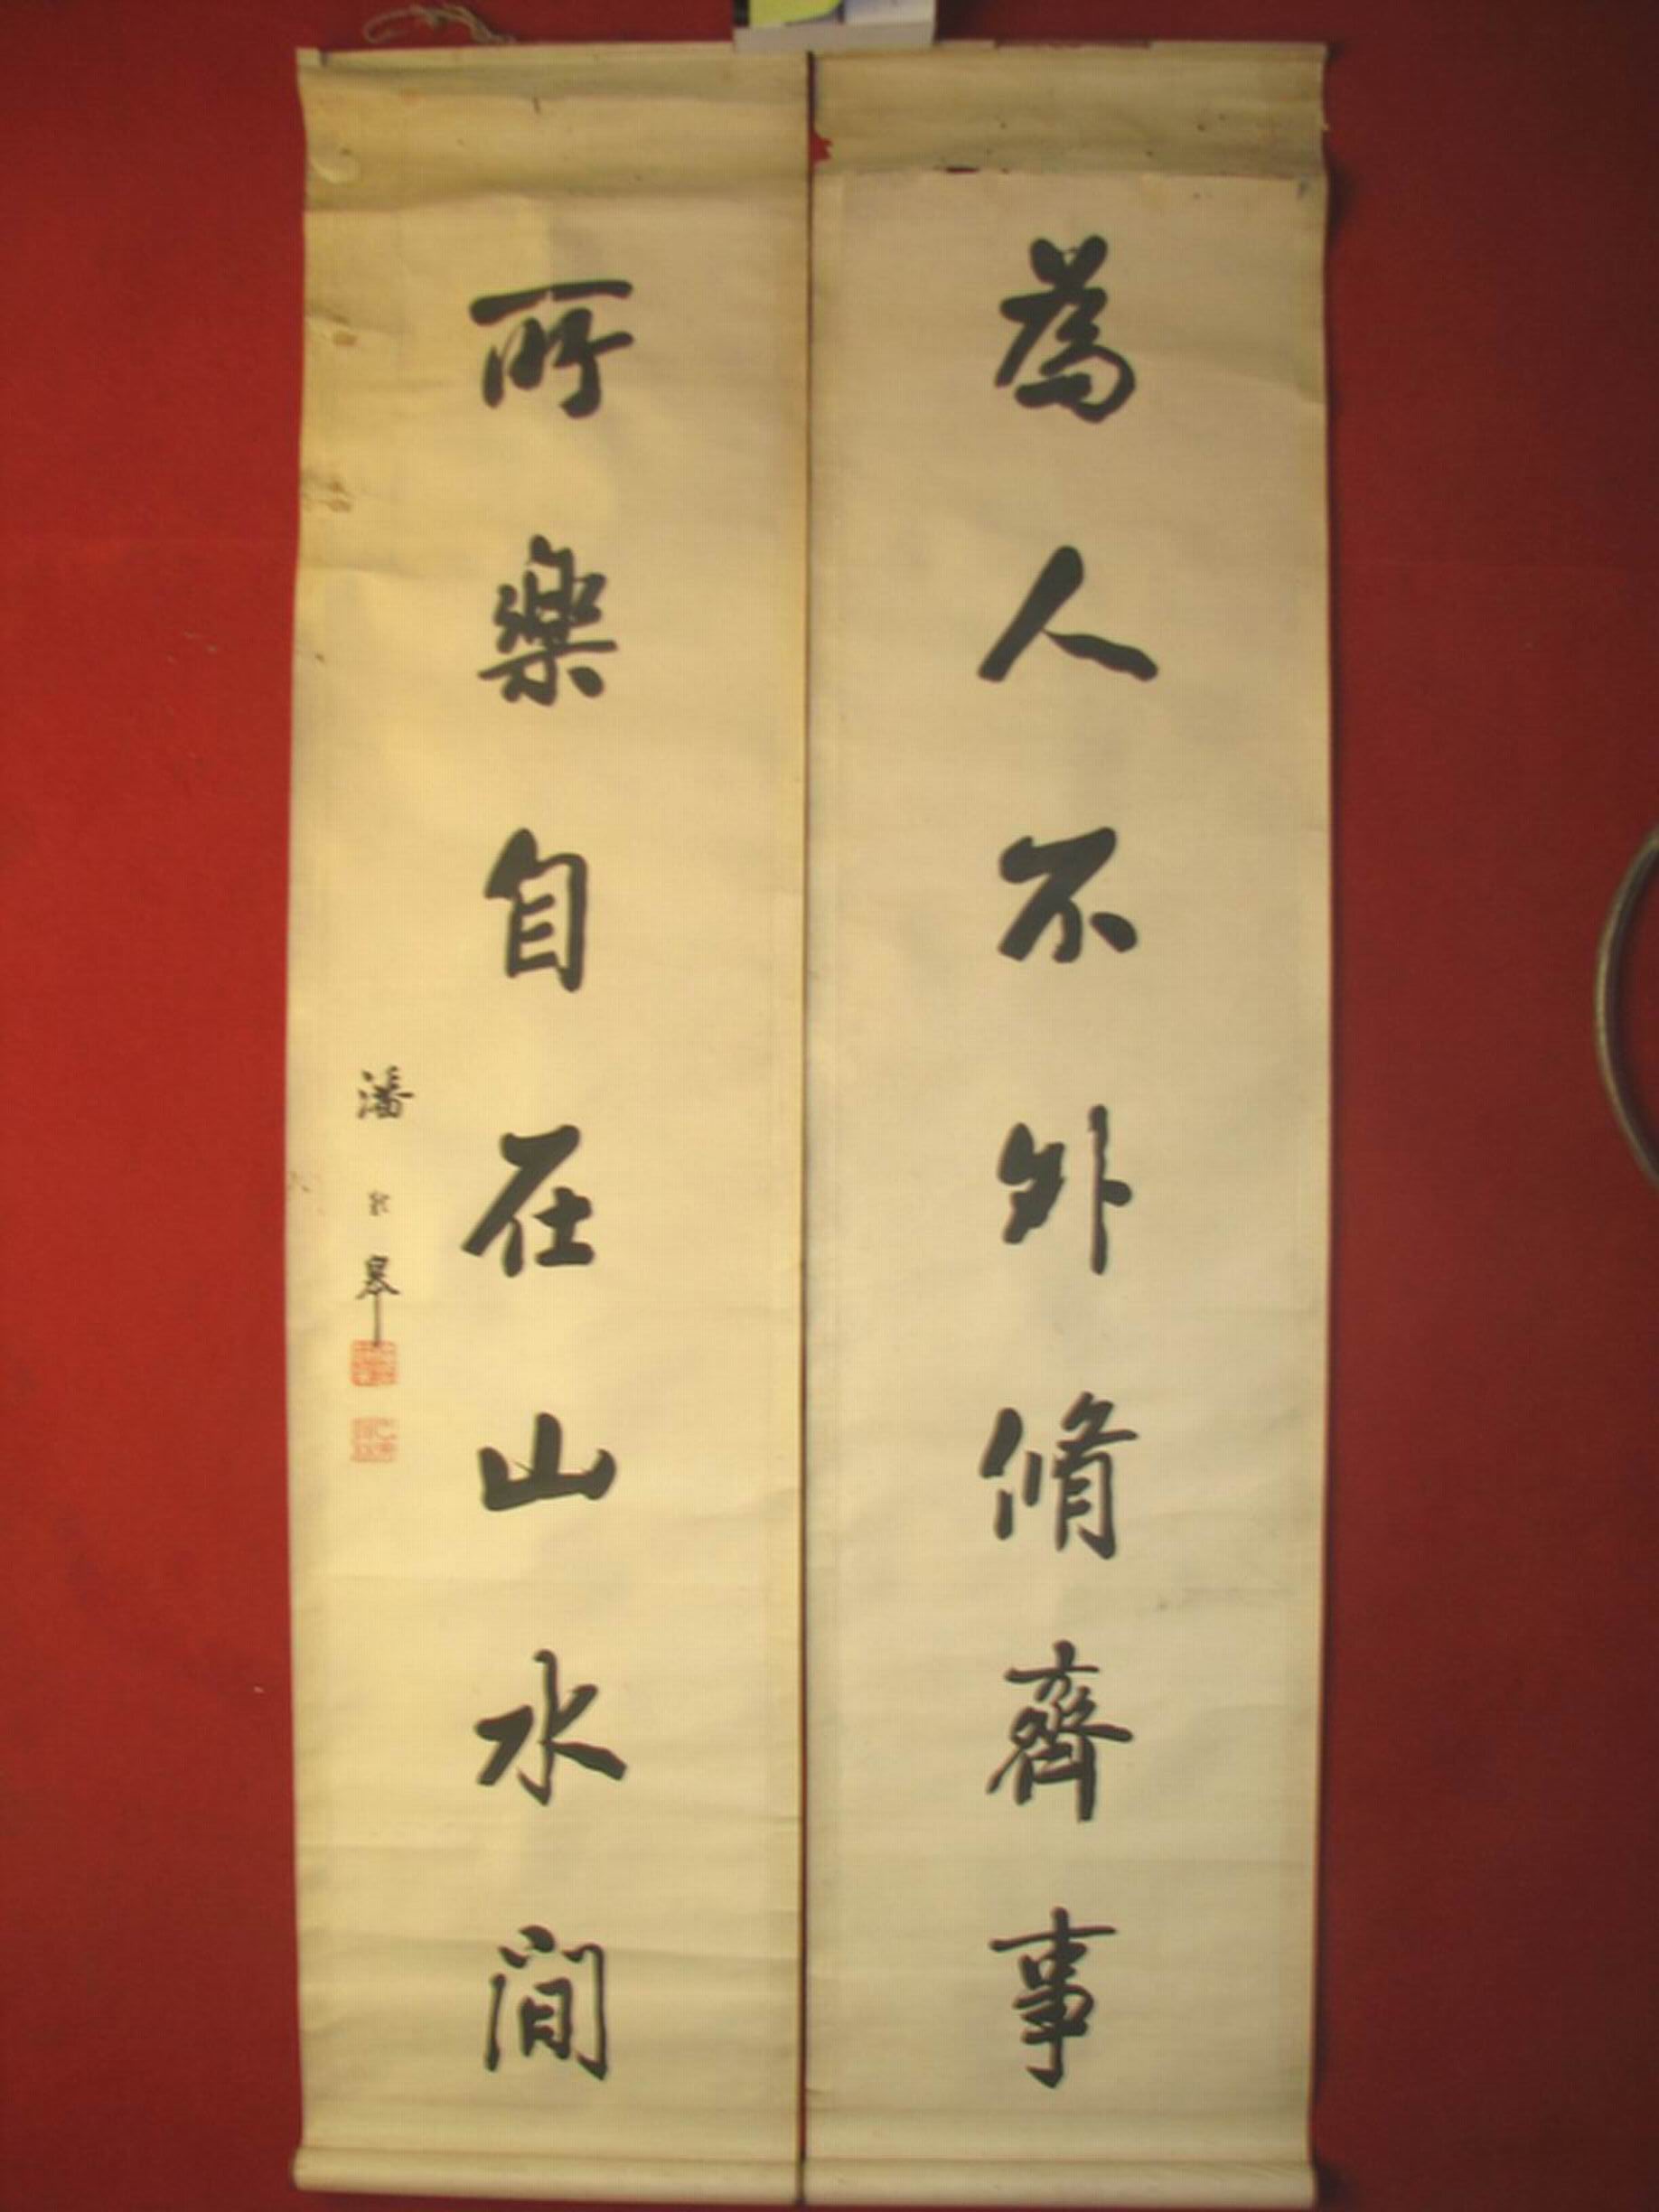 為人不外脩齊事
所樂自在山水間
潘 皋